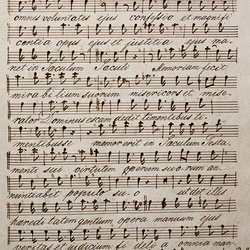 omnes voluntates ejus confesio et magnifi
centia opus ejus et justitia ejus ma
net in Saeculum Saeculi Memoriam fecit
mirabilium suorum misericors et mise
rator Dominus escam dedit timentibus ti
mentibus se memor erit in Saeculum Testa
menti sui virtutem operum suorum an
nuntiabit populo suo ut det illis
haereditatem gentium opera manuum ejus
veritas et judicium fidelia omnia man